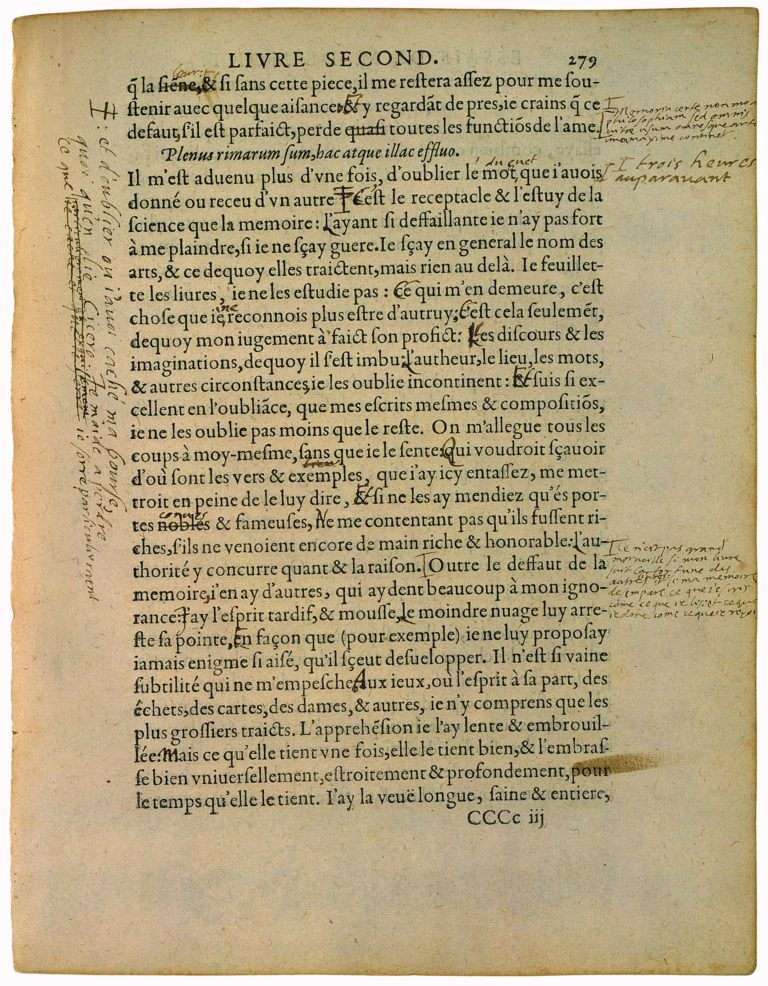 LIVRE SECOND. 279
q̃ la siẽne, & si sans cette piece, il me restera assez pour me sou-
stenir auec quelque aisance. Et y regardãt de pres, ie crains q̃ ce
defaut, s'il est parfaict, perde quasi toutes les functiõs de l'ame.
Plenus rimarum sum, hac atque illac effluo.
Il m'est aduenu plus d'vne fois, d'oublier le mot du guet, que i'auois
donné ou receu d'vn autre. C'est le receptacle & l'estuy de la
science que la memoire: L'ayant si deffaillante ie n'ay pas fort
à me plaindre, si ie ne sçay guere. Ie sçay en general le nom des
arts, & ce dequoy elles traictent, mais rien au delà. Ie feuillet-
te les liures, ie ne les estudie pas: Ce qui m'en demeure, c'est
chose que ie ne reconnois plus estre d'autruy; C'est cela seulemẽt,
dequoy mon iugement à faict son profict: Les discours & les
imaginations, dequoy il s'est imbu. L'autheur, le lieu, les mots,
& autres circonstances, ie les oublie incontinent: Et suis si ex-
cellent en l'oubliãce, que mes escrits mesmes & compositiõs,
ie ne les oublie pas moins que le reste. On m'allegue tous les
coups à moy-mesme, sans que ie le sente. Qui voudroit sçauoir
d'où sont les vers & exemples, que i'ay icy entassez, me met-
troit en peine de le luy dire, Et si ne les ay mendiez qu'és por-
tes nobles conues & fameuses, Ne me contentant pas qu'ils fussent ri-
ches, s'ils ne venoient encore de main riche & honorable: L'au-
thorité y concurre quant & la raison. Outre le deffaut de la
memoire, i'en ay d'autres, qui aydent beaucoup à mon igno-
rance: I'ay l'esprit tardif, & mousse, Le moindre nuage luy arre-
ste sa pointe, En façon que (pour exemple) ie ne luy proposay
iamais enigme si aisé, qu'il sçeut desuelopper. Il n'est si vaine
subtilité qui ne m'empesche. Aux ieux, où l'esprit à sa part, des
échets, des cartes, des dames, & autres, ie n'y comprens que les
plus grossiers traicts. L'apprehẽsion ie l'ay lente & embrouil-
lée. Mais ce qu'elle tient vne fois, elle le tient bien, & l'embras-
se bien vniuersellement, estroitement & profondement, pour
le temps qu'elle le tient. I'ay la veuë longue, saine & entiere,
CCCc iij
Memoria certe non mo
philosophiam sed omnis
vitæ usum omnesque artes
una maxime continet
trois heures
auparavant
Ce n'est pas grand
merveille si mon livre
suit la fortune des
autres si ma memoire
desempare ce que i'escris
come ce que ie lis et ce que
ie done come ce que ie reçoi
et d'oublier ou i'avoi caché ma bourse,
quoi qu'en die Cicero. Ie m'aide a perdre
ce que ie serre particulierement